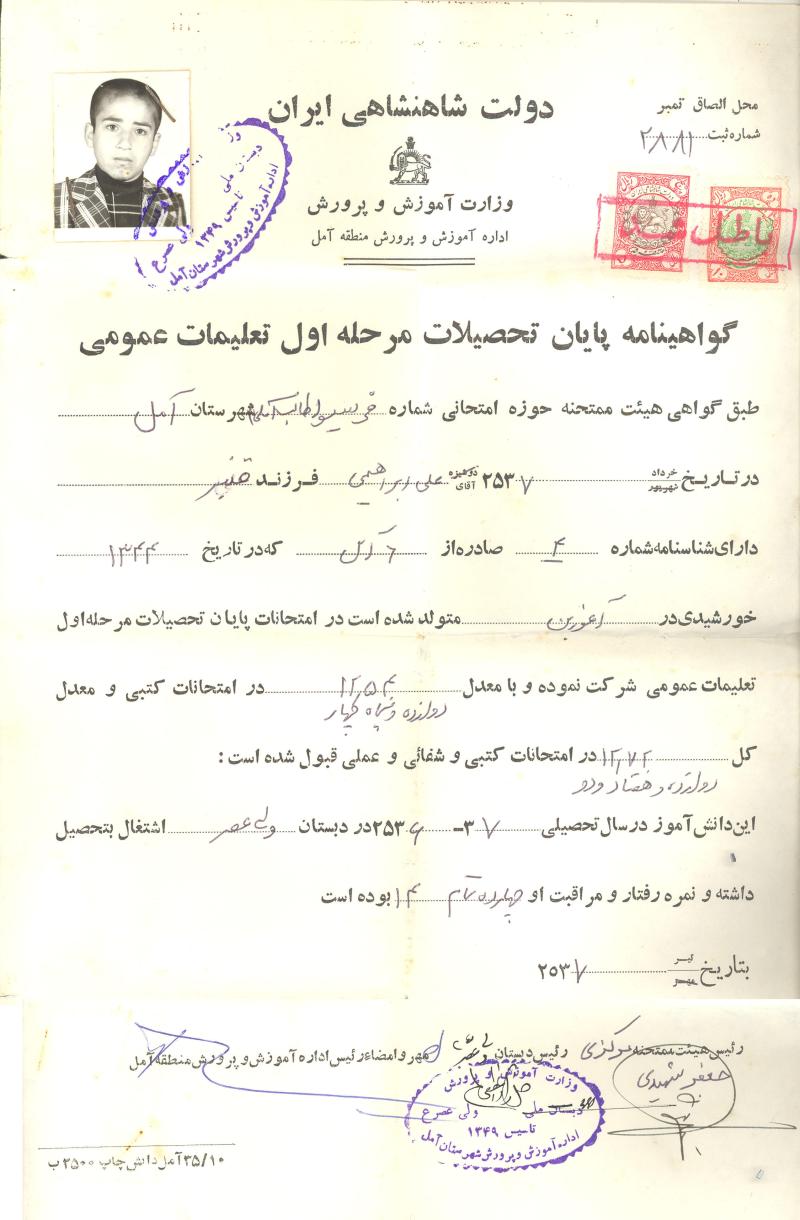 محل الصاق تمبر
شماره ثبت ۲۸۸۱
دولت شاهنشاهی ایران
وزارت آموزش و پرورش
اداره آموزش و پرورش منطقه آمل
باطل شد
دبستان ملی
ولی عصر ع
تاسیس ۱۳۴۹
اداره آموزش و پرورش شهرستان آمل
گواهینامه پایان تحصیلات مرحله اول تعلیمات عمومی
طبق گواهی هیئت ممتحنه حوزه امتحانی شماره شهرستان آمل
در تاریخ خرداد شهریور ۲۵۳۷ دوشیزه آقای علی ابراهیمی فرزند قنبر
دارای شناسنامه شماره ۴ صادره از آمل که در تاریخ ۱۳۴۴
خورشیدی در متولد شده است در امتحانات پایان تحصیلات مرحله اول
تعلیمات عمومی شرکت نموده و با معدل ۱۲٫۵۴ در امتحانات کتبی و معدل
دوازده و پنجاه چهار
کل ۱۲٫۷۲ در امتحانات کتبی و شفائی و عملی قبول شده است :
دوازده و هفتاد و دو
این دانش آموز در سال تحصیلی ۳۷ - ۲۵۳۶ در دبستان ولی عصر اشتغال بتحصیل
داشته و نمره رفتار و مراقبت او چهارده تمام ۱۴ بوده است
بتاریخ تیر مهر ۲۵۳۷
رئیس هیئت ممتحنه مرکزی رئیس دبستان ولی عصر مهر و امضاء رئیس اداره آموزش و پرورش منطقه آمل
جعفر شهیدی
وزارت آموزش و پرورش
دبستان ملی ولی عصر ع
تاسیس ۱۳۴۹
اداره آموزش و پرورش شهرستان آمل
۳۵/۱۰ آمل دانش چاپ ۲۵۰۰ ب